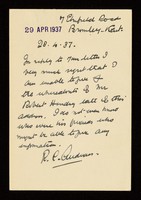 29 APR 1937
Bromley, Kent.
28.4.37.
In reply to your letter I
very much regret that I
am unable to give you
the whereabouts of Mr
Robert Hendry late of this
address. I do not even know
who were his friends who
might be able to give any
information.